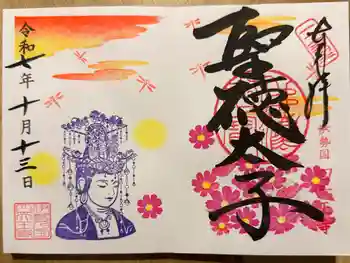 奉拝
聖徳太子
令和七年十月十三日